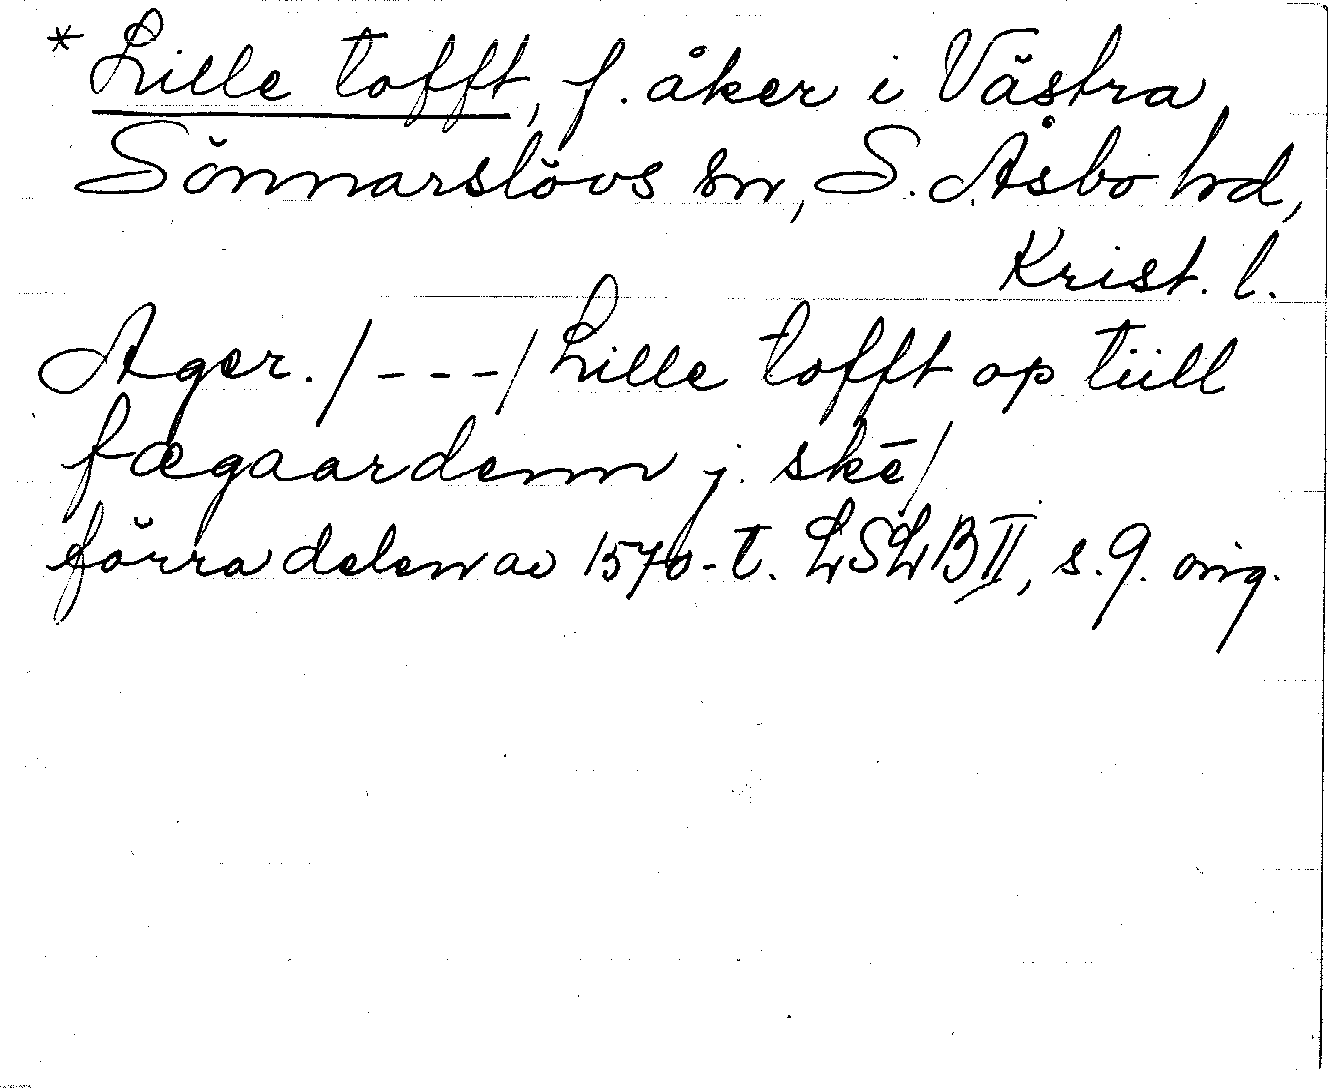 * Lille tofft, f. åker i Västra
Sönnarslövs sn, S. Åsbo hd,
Krist. l.
Ager. /---/ Lille tofft op tiill
fægaardenn j. skē/
förra delen av 1570-t. LSLB II, s. 9. orig.